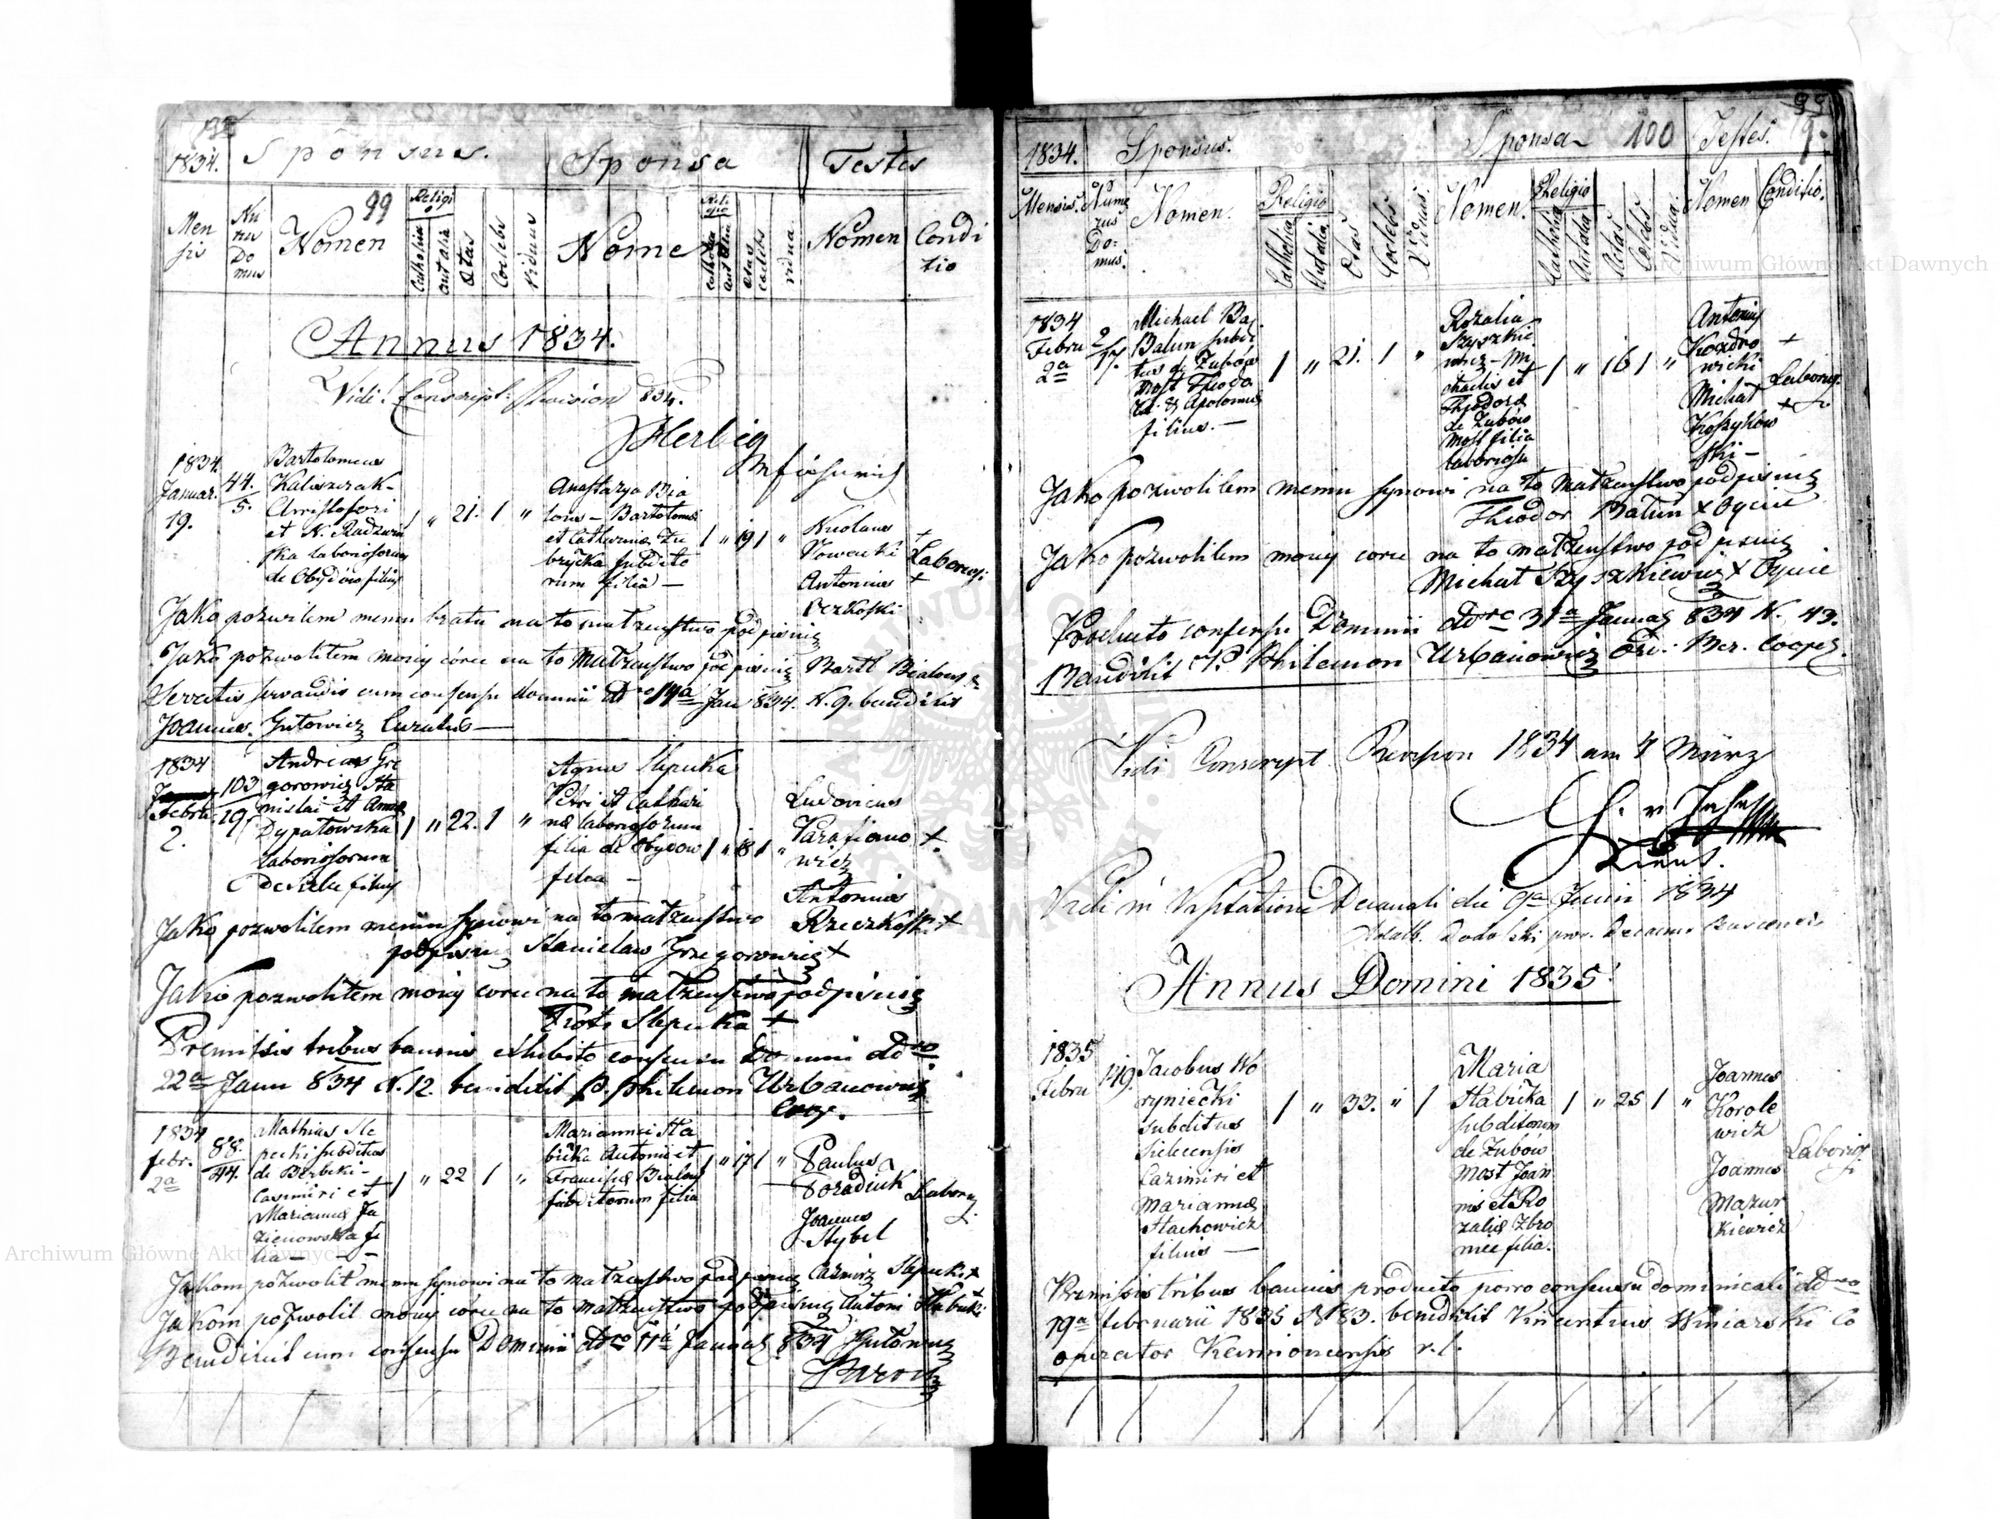 1834. Sponsus. Sponsa Testes
Mensis Nurus Domus Nomen 99 Religio Catholica aut alia Ætas Coelebs Viduus Nomen Religio Catholica aut alia Ætas Coelebs vidua Nomen Conditio
Annus 1834.
Vidi Conscript: Revision 834.
Herbig
1834
Januar.
19.
44.
5.
Bartolomeus
Kaluszczak
Christofori
et N. Radzwin
ska laboriosorum
de Obydów filius
1 " 21. 1 "
Anastazya Bia
lous - Bartolomei
et Catharina Zu
brycka subdito
rum filia -
1 " 19 1 "
Nicolaus
Nowacki +
Antonius +
Rezkoski
Laboriosi
Jako pozwolilem memu bratu na to matzenstwo podpisuię
Jako pozwolitem moiey córce na to Matzenstwo podpisuię Bartl Bialous
Servatis servandis cum consensu dominii ddto 14a Jan 834. N. 9. benedixit
Joannes Gutowicz Curatus -
1834
Febru
2.
103
19
Andreas Gre
gorowicz Sta
nislai et Anna
Dypatowska
Laboriosorum
de Sielec filius
1 " 22. 1 "
Agnes Slepucka
Petri et Cathari
næ laboriosorum
filia de Obydow
filia -
1 " 18 1 "
Ludovicus
Parafiano +
wicz
Antonius
Rzeczkoski +
Jako pozwolitem memu synowi na to matzenstwo
podpisuię Stanislaw Grzegorowicz +
Jako pozwolitem moiey corce na to matzenstwo podpisuię
Piotr Slepucka +
Premissis tribus bannis exhibito consensu Domini ddto
22a Janu 834 N. 12. benedixit P. Philemon Urbanowicz
Coop.
1834
febr.
2a
88.
44.
Mathias Sle
pecki subditus
de Berbeki -
Casimiri et
Mariannæ Ja
zienowska fi
lia -
1 " 22 1 "
Marianna Sta
bicka Antonii et
Francisca Bialous
subditorum filia
1 " 17 1 "
Paulus
Poradiuk
Joannes
Stybel
Labor
Jakom pozwolil memu synowi na to matzenstwo podpisuię Cazmirz Slepucki +
Jakom pozwolil moiey córce na to matzenstwo podpisuię Antoni Stabicki
Benedixit cum consensu Dominii ddto 11a Januar 834 Gutowicz
Paroch
1834. Sponsus. Sponsa 100 Testes. 99
Mensis. Numerus Domus. Nomen. Religio Catholica Aut alia Ætas Coelebs Viduus. Nomen. Religio Catholica Aut alia Aetas Coelebs Vidua. Nomen Conditio.
1834
Febru
2a
2
17.
Michael Ba
Batun subdi
tus de Zubów
Most Theodo
ri & Apolonia
filius. -
1 " 21. 1 "
Rozalia
Szyszkie
wicz - Mi
chaelis et
Theodora
de Zubów
Most filia
laboriosi
1 " 16 1 "
Antonius
Kozdro +
wicki
Michal +
Koszykow
ski -
Laborios.
Jako pozwolilem memu synowi na to Matzenstwo podpisuię
Theodor Batun x Oyciec
Jako pozwolilem moiey corce na to matzenstwo podpisuię
Michal Szyszkiewicz x Oyciec
Producto consensu Dominii ddto 31a Januar 834 N. 43.
Benedixit P. Philemon Urbanowicz Ord. Coop.
Vidi Conscript Revision 1834 am 4 März
Vidi in Visitatione Decanali die 9a Junii 1834
Annus Domini 1835
1835
Febru
149.
Jacobus Wo
ryniecki
subditus
Sielecensis
Cazimiri et
Mariannæ
Stachowicz
filius -
1 " 33. " 1
Maria
Stabicka
subditorum
de Zubów
Most Joan
nis et Ro
zaliæ Zbro
mee filia.
1 " 25 1 "
Joannes
Korole
wicz
Joannes
Mazur
kiewicz
Laborios
Premissis tribus bannis producto porro consensu dominicali ddto
19a februarii 1835 N 83. benedixit Vincentius Winiarski Co
operator Kamioncensis r. l.
Archiwum Główne Akt Dawnych
Archiwum Główne Akt Dawnych
ARCHIWUM GŁÓWNE AKT DAWNYCH